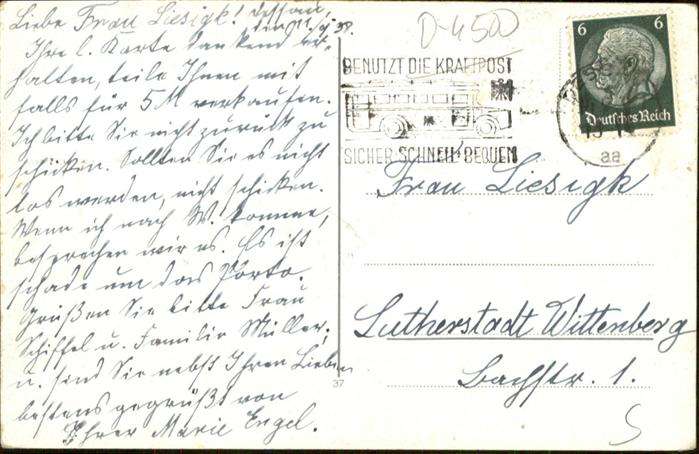 Liebe Frau Liesigk! Dessau,
den 11. 38.
Ihre l. Karte dankend er-
halten, teile Ihnen mit
falls für 5 M verkaufen.
Ich bitte Sie nicht zurück zu
schicken. Sollten Sie es nicht
los werden, nicht schicken.
Wenn ich nach W. komme,
besprechen wir es. Es ist
schade um das Porto.
Grüßen Sie bitte Frau
Schiffel u. Familie Müller,
u. sind Sie nebst Ihren Lieben
bestens gegrüßt von
Ihrer Marie Engel.
D-4500
BENUTZT DIE KRAFTPOST
SICHER SCHNELL BEQUEM
6 6
Deutsches Reich
aa
Frau Liesigk
Lutherstadt Wittenberg
Bachstr. 1.
37